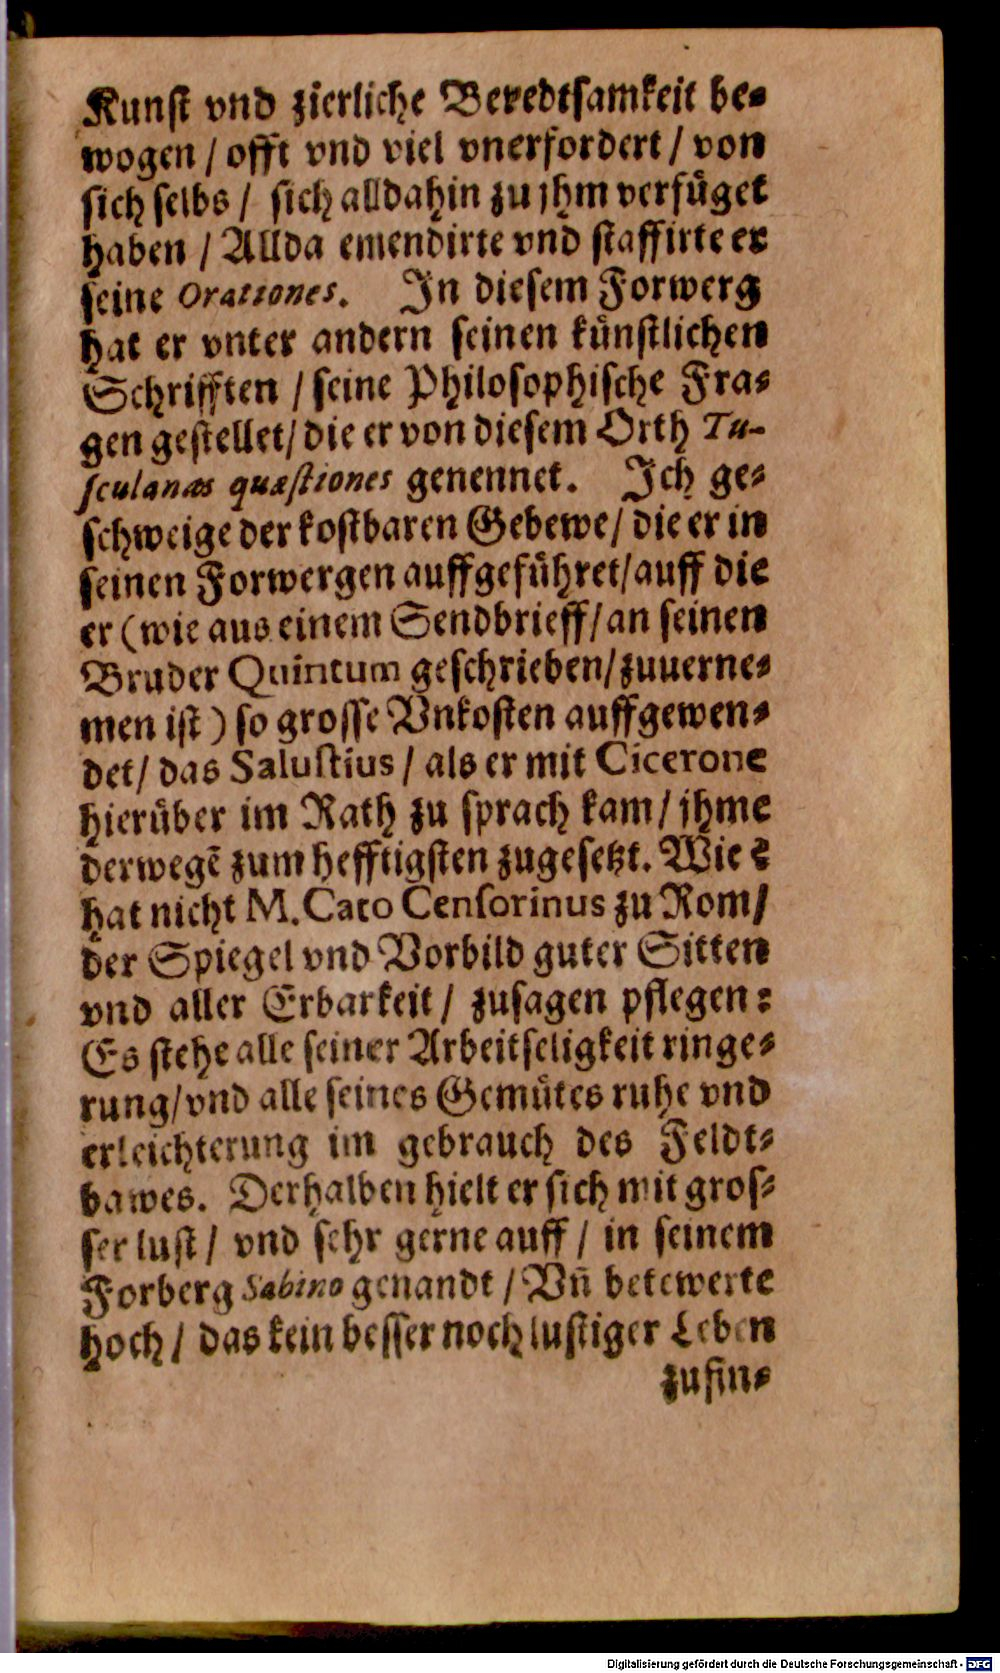 Kunſt vnd zierliche Beredtſamkeit be-
wogen / offt vnd viel vnerfordert / von
ſich ſelbs / ſich alldahin zu jhm verfuͤget
haben / Allda emendirte vnd ſtaffirte er
ſeine Orationes. In dieſem Forwerg
hat er vnter andern ſeinen kuͤnſtlichen
Schrifften / ſeine Philoſophiſche Fra-
gen geſtellet / die er von dieſem Orth Tu-
ſculanas quæſtiones genennet. Ich ge-
ſchweige der koſtbaren Gebewe / die er in
ſeinen Forwergen auffgefuͤhret / auff die
er (wie aus einem Sendbrieff / an ſeinen
Bruder Quintum geſchrieben / zuuerne-
men iſt) ſo groſſe Vnkoſten auffgewen-
det / das Saluſtius / als er mit Cicerone
hieruͤber im Rath zu ſprach kam / jhme
derwegẽ zum hefftigſten zugeſetzt. Wie?
hat nicht M. Cato Cenſorinus zu Rom /
der Spiegel vnd Vorbild guter Sitten
vnd aller Erbarkeit / zuſagen pflegen:
Es ſtehe alle ſeiner Arbeitſeligkeit ringe-
rung / vnd alle ſeines Gemuͤtes ruhe vnd
erleichterung im gebrauch des Feldt-
bawes. Derhalben hielt er ſich mit groſ-
ſer luſt / vnd ſehr gerne auff / in ſeinem
Forberg Sabino genandt / Vñ betewerte
hoch / das kein beſſer noch luſtiger Leben
zufin-
Digitalisierung gefördert durch die Deutsche Forschungsgemeinschaft - DFG